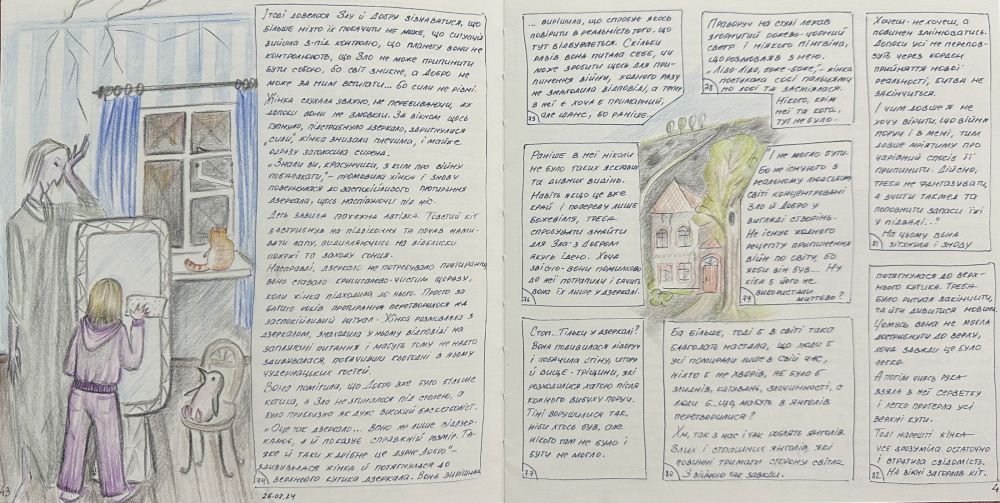 І тоді довелося Злу й Добру зізнаватися, що
більше ніхто їх побачити не може, що ситуація
вийшла з-під контролю, що планету вони не
контролюють, що Зло не може припинити
бути собою, бо світ зникне, а Добро не
може за ним встигати... бо сили не рівні.
Жінка слухала уважно, не перебиваючи, аж
допоки вони не змовкли. За вікном щось
гупнуло, підстрибнуло дзеркало, здригнулися
"сили", жінка знизала плечима, і майже
одразу заголосила сирена.
"Знали ви, красунчики, з ким про війну
побалакати," – промовила жінка і знову
повернулася до заспокійливого протирання
дзеркала, щось наспівуючи під ніс.
Десь завила пожежна автівка. Товстий кіт
застрибнув на підвіконну та почав нами-
вати лапу, видивляючись на відблиски
пожежі та заходу сонця.
Насправді, дзеркало не потребувало протирання,
воно ставало кришталево-чистим щоразу,
коли жінка підходила до нього. Просто за
багато років протирання перетворилося на
заспокійливий ритуал. Жінка розмовляла з
дзеркалом, знаходила у ньому відповіді на
заплутані питання і мабуть тому не надто
здивувалася, побачивши сьогодні в ньому
чудернацьких гостей.
Вона помітила, що Добро вже було більше
котика, а Зло не згиналося під стелею, а
було приблизно як дуже високий баскетболіст.
"Оце так дзеркало... Воно не лише віддзер-
калює, а й показує справжній розмір. Та
яке ж таки здрібне це дурне Добро" –
здивувалася жінка й потягнулася до
верхнього кутика дзеркала. Вона вирішила
74
43
26.02.24
... вирішила, що спробує якось
повірити в реальність того, що
тут відбувається. Скільки
разів вона питала себе, чи
може зробити щось для при-
пинення війни, жодного разу
не знаходила відповіді, а тепер
в неї є хоча б примарний,
але шанс, бо раніше...
75
Раніше в неї ніколи
не було таких яскравих
та дивних видінь.
Навіть якщо це вже
край і попереду лише
божевілля, треба
спробувати знайти
для Зла з Добром
якусь ідею. Хоча
звісно – вони помилково
до неї потрапили і бачить
вона їх лише у дзеркалі.
76
Стоп. Тільки у дзеркалі?
Вона подивилася ліворуч
і побачила стіну, угору
й вище – тріщини, які
розходилися хатою після
кожного вибуху поруч.
Тіні ворушилися так,
ніби хтось був, але
нікого там не було і
бути не могло.
77
Праворуч на стулі лежав
згорнутий рожево-чорний
светр і ніякого пінгвіна,
що розмовляв з нею.
"Лідо-Лідо, боже-боже," – жінка
постукала собі пальцями
по лобі та засміялася.
Нікого, крім
неї та кота,
тут не було.
78
І не могло бути.
Бо не існуючого в
реальному людському
світі концентровані
Зло й Добро у
вигляді створінь.
Не існує жодного
рецепту припинення
війн по світу, бо
якби він був... Ну
хіба б його не
використали
миттєво?
79
Ба більше, тоді б в світі така
благодать настала, що люди б
усі помирали лише в свій час,
ніхто б не хворів, не було б
злиднів, катувань, злочинності, а
люди б... що, мабуть в янголів
перетворилися?
Хм, так з нас і так роблять янголів.
Злих і страшних янголів, які
повинні тримати сторону світла.
З війною так завжди.
80
Хочеш-не хочеш, а
повинен змінюватись.
Допоки усі не перепов-
зуть через кордон
прийняття нової
реальності, битва не
закінчиться.
І чим довше я не
хочу вірити, що війна
поруч і в мені, тим
довше мріятиму про
чарівний спосіб її
припинити. Дійсно,
треба не фантазувати,
а вчити такмед та
поповнити запаси їжі
у підвалі..."
На цьому вона
зітхнула і знову
81
потягнулася до верх-
нього кутика. Треба
було ритуал закінчити,
та йти дивитися новини.
Чомусь вона не могла
дострибнути до верху,
хоча завжди це було
легко.
А потім чиясь рука
взяла в неї серветку
і легко протерла усі
верхні кути.
Тоді нарешті жінка
усе зрозуміла остаточно
і втратила свідомість.
На вікні загорлав кіт.
82
4